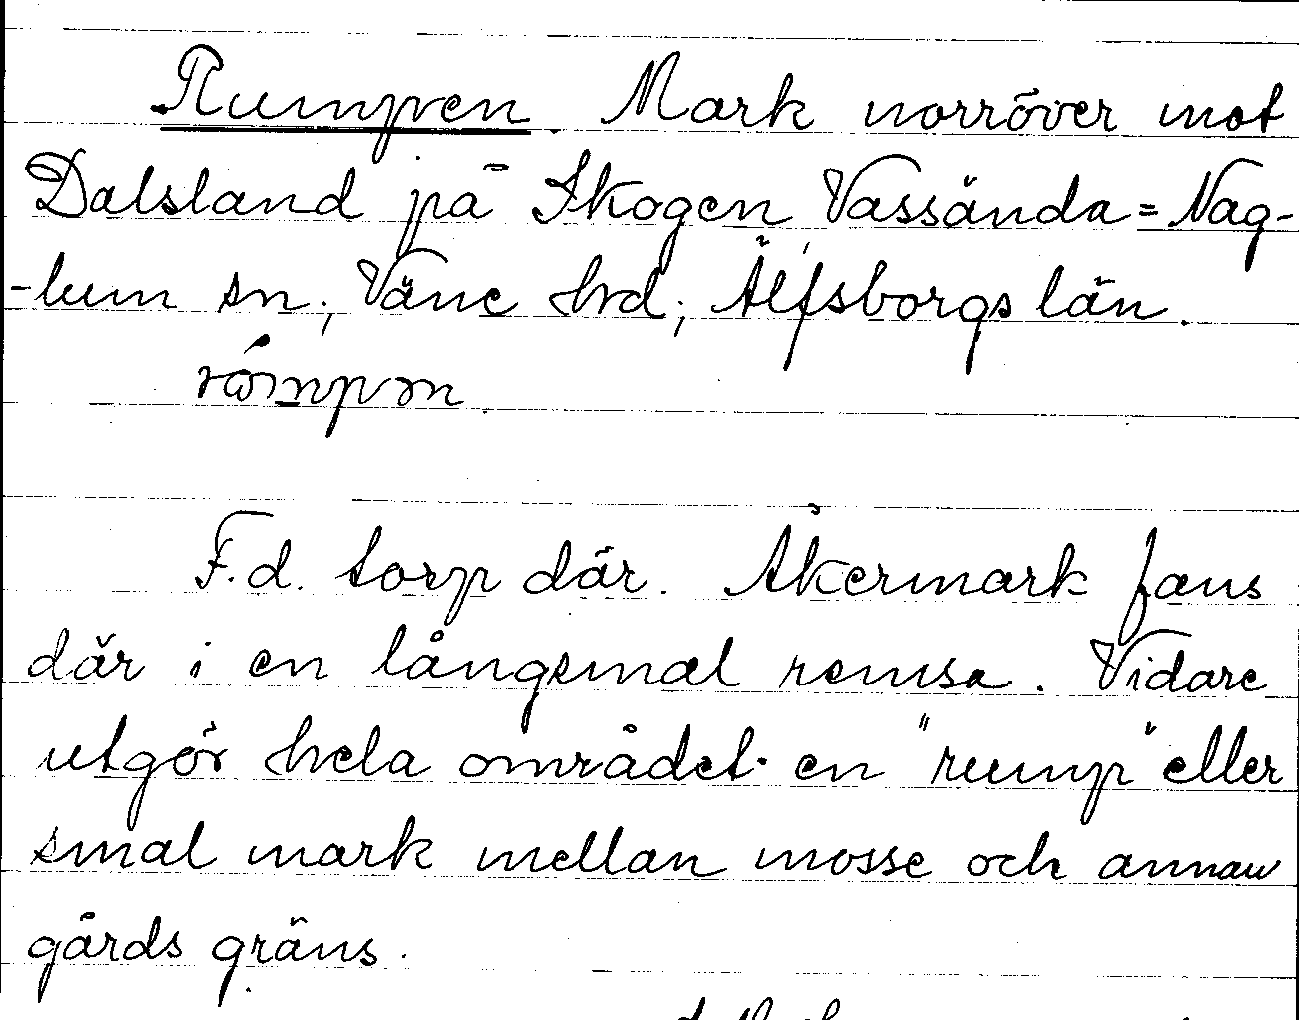 Rumpen. Mark norröver mot
Dalsland på Skogen, Vassända=Nag-
-lum sn; Väne hrd; Älfsborgs län.
F.d. torp där. Åkermark fans
där i en långsmal remsa. Vidare
utgör hela området en "rump" eller
smal mark mellan mosse och annan
gårds gräns.